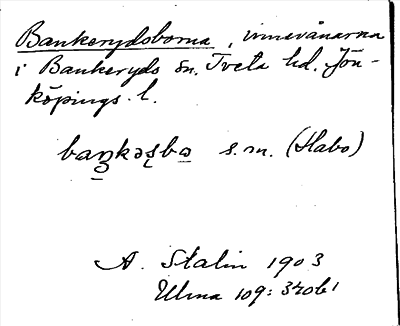 Bankerydsborna, innevånarna
i Bankeryds sn. Tveta hd. Jön-
köpings l.
baŋkəsbə s.m. (Habo)
A. Stalin 1903
Ulma 109: 370b1